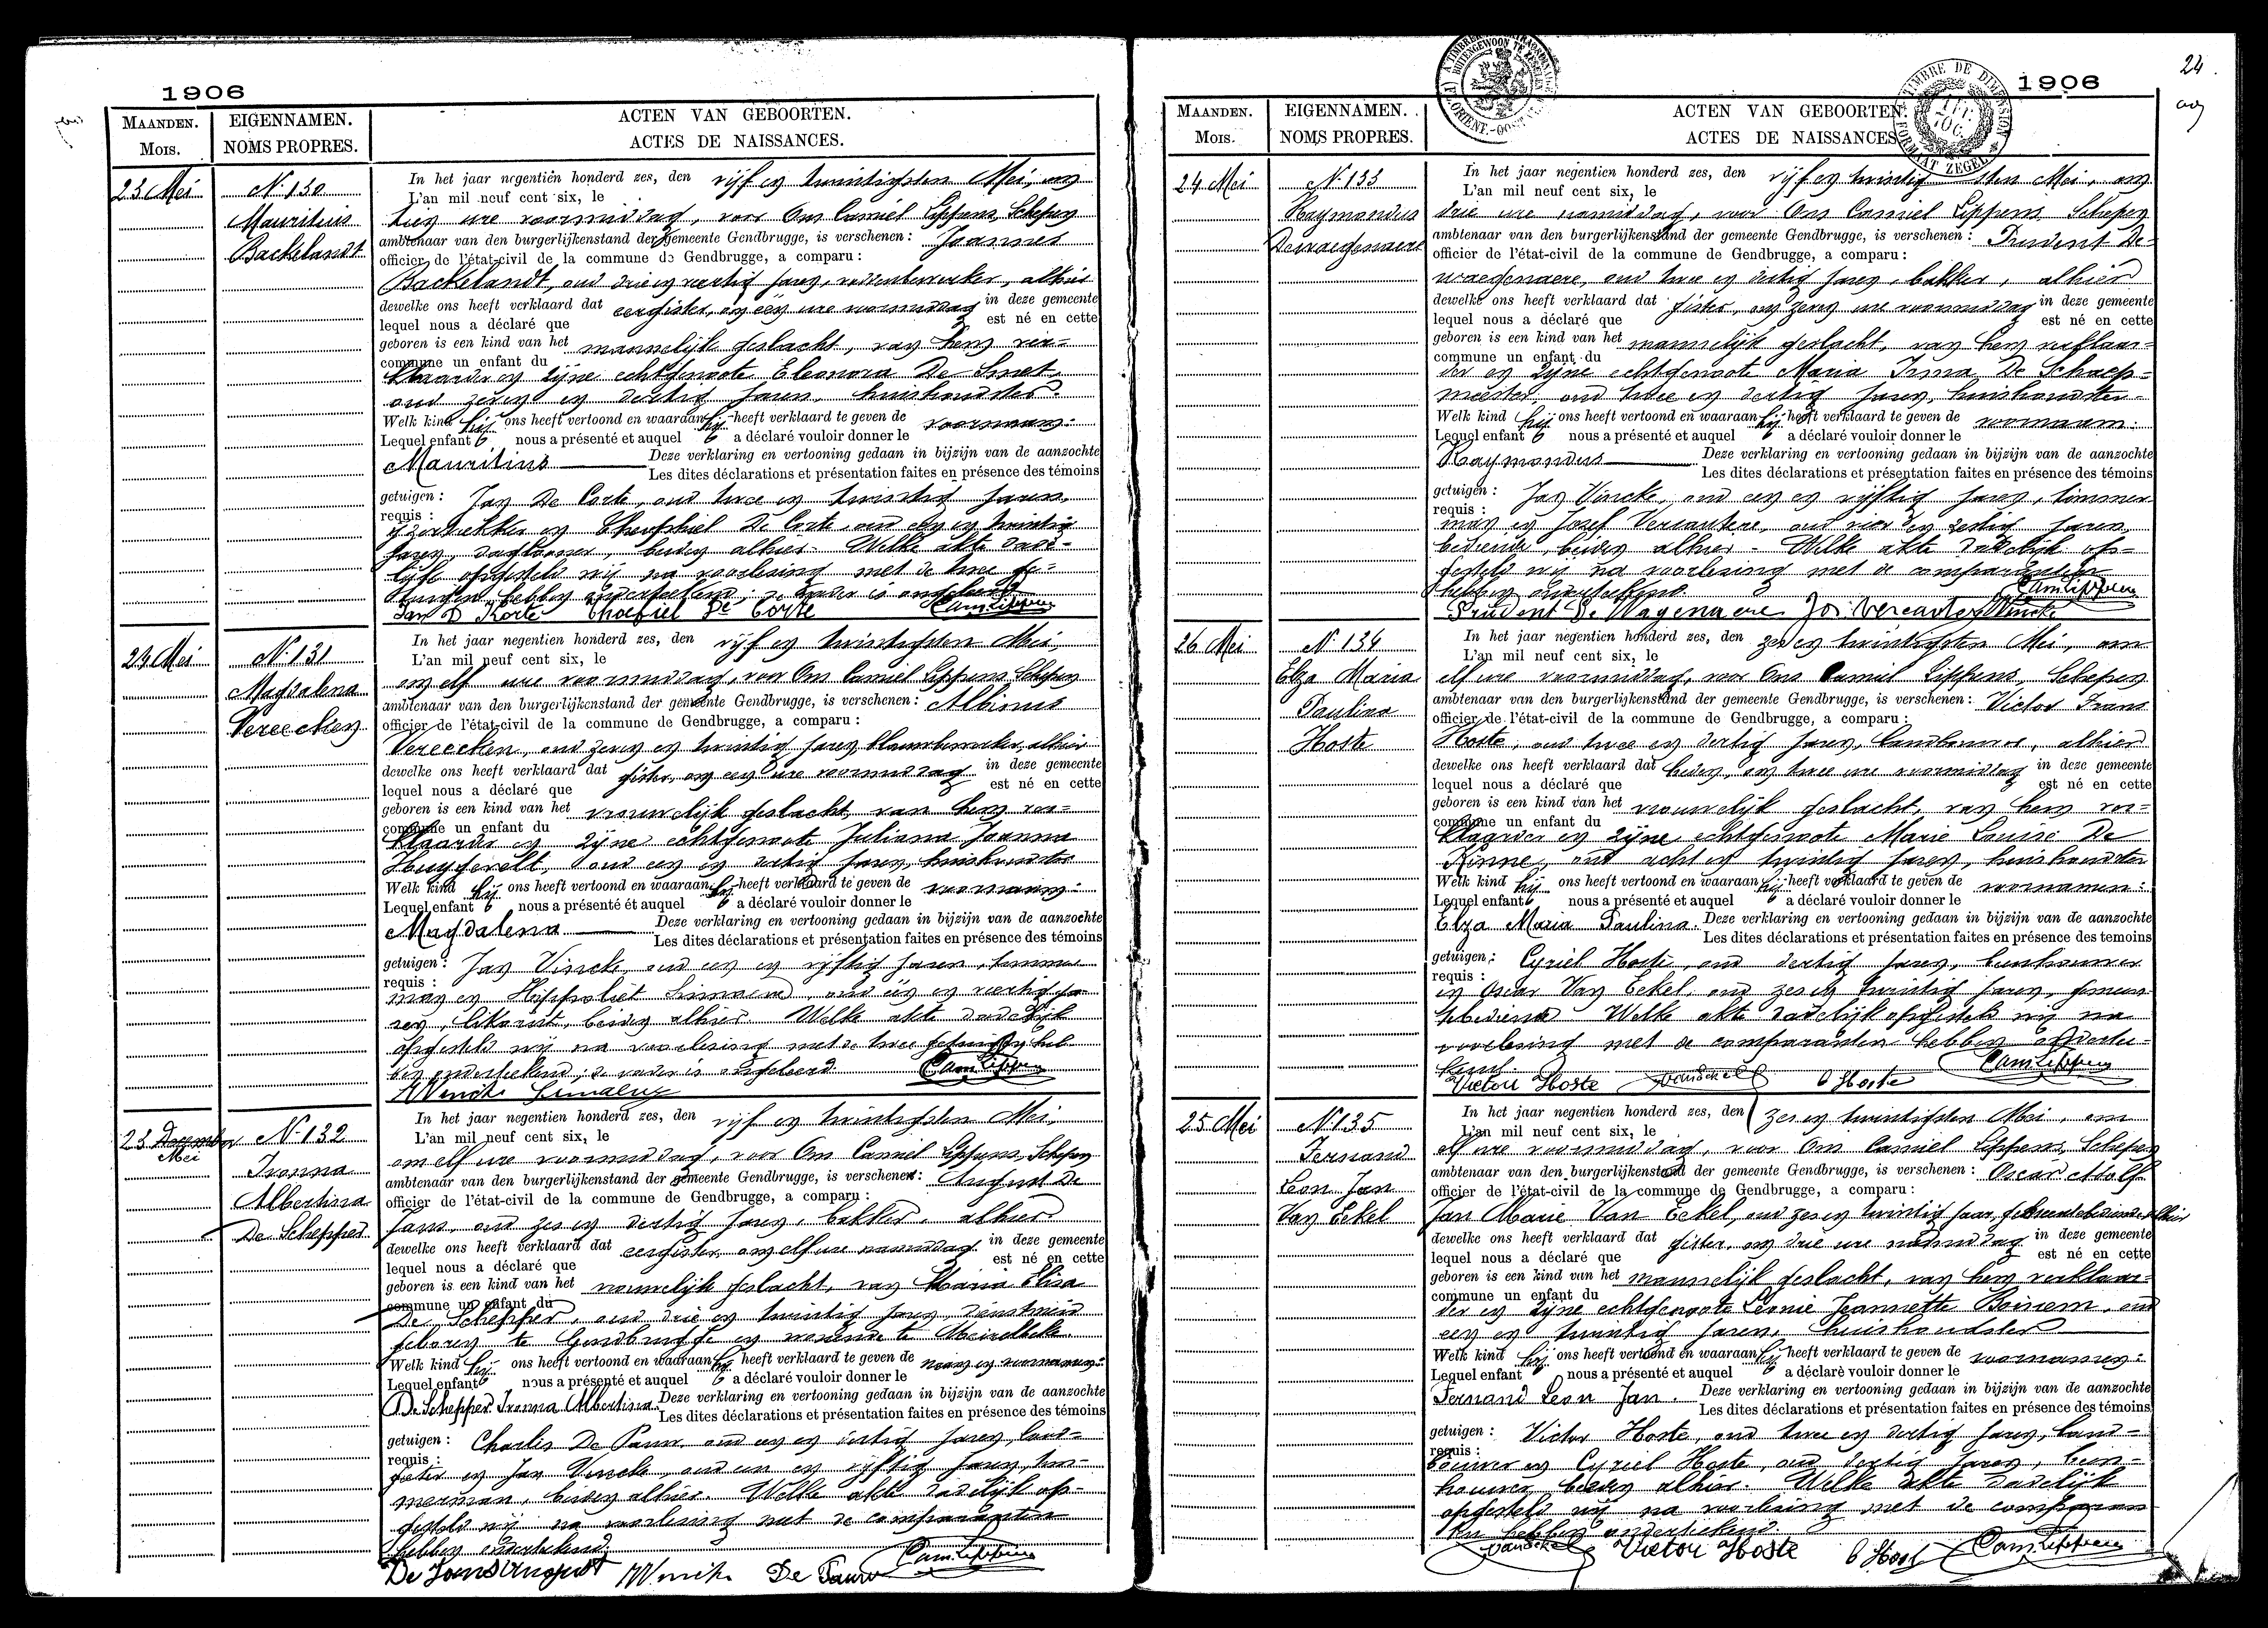 1906
MAANDEN.
MOIS.
EIGENNAMEN.
NOMS PROPRES.
ACTEN VAN GEBOORTEN.
ACTES DE NAISSANCES.
23 Mei
N. 130
Mauritius
Backelandt
In het jaar negentien honderd zes, den vijf en twintigsten Mei, om
L'an mil neuf cent six, le
tien ure voormiddag, voor Ons Camiel Lippens, Schepen
ambtenaar van den burgerlijkenstand der gemeente Gendbrugge, is verschenen: Joannes
officier de l'état-civil de la commune de Gendbrugge, a comparu:
Backelandt, oud drie en veertig jaren, alhier
dewelke ons heeft verklaard dat eergister, om één ure voormiddag in deze gemeente
lequel nous a déclaré que est né en cette
geboren is een kind van het mannelijk geslacht, van hem ver-
commune un enfant du
klaarder en zijne echtgenoote Eleonora De Smet,
oud zeven en dertig jaren, huishoudster.
Welk kind hij ons heeft vertoond en waaraan hij heeft verklaard te geven de voornaam:
Lequel enfant nous a présenté et auquel a déclaré vouloir donner le
Mauritius Deze verklaring en vertooning gedaan in bijzijn van de aanzochte
Les dites déclarations et présentation faites en présence des témoins
getuigen: Jan De Corte, oud twee en twintig jaren,
requis:
en Theophiel De Corte, oud één en twintig
jaren, daglooner, beiden alhier. Welke akte dade-
lijk opgesteld wij na voorlezing met de twee ge-
tuigen hebben onderteekend; de vader is ongeleerd.
Jan D Korte Thoefiel De Corte Cam Lippens
24 Mei
N. 131
Magdalena
Vereecken
In het jaar negentien honderd zes, den vijf en twintigsten Mei,
L'an mil neuf cent six, le
om elf ure voormiddag, voor Ons Camiel Lippens, Schepen
ambtenaar van den burgerlijkenstand der gemeente Gendbrugge, is verschenen: Albinus
officier de l'état-civil de la commune de Gendbrugge, a comparu:
Vereecken, oud zeven en twintig jaren, alhier
dewelke ons heeft verklaard dat gister, om een ure voormiddag in deze gemeente
lequel nous a déclaré que est né en cette
geboren is een kind van het vrouwelijk geslacht, van hem ver-
commune un enfant du
klaarder en zijne echtgenoote Juliana Joanna
oud een en dertig jaren, huishoudster
Welk kind hij ons heeft vertoond en waaraan hij heeft verklaard te geven de voornaam:
Lequel enfant nous a présenté et auquel a déclaré vouloir donner le
Magdalena Deze verklaring en vertooning gedaan in bijzijn van de aanzochte
Les dites déclarations et présentation faites en présence des témoins
getuigen: Jan Vincke, oud een en vijftig jaren, timmer
requis:
man en Hippoliet oud één en veertig ja-
ren, beiden alhier. Welke akte dadelijk
opgesteld wij na voorlezing met de twee getuigen heb
ben onderteekend; de vader is ongeleerd. Cam Lippens
Vincke
23 December
Mei
N. 132
Ivonna
Albertina
De Schepper
In het jaar negentien honderd zes, den vijf en twintigsten Mei,
L'an mil neuf cent six, le
om elf ure voormiddag, voor Ons Camiel Lippens, Schepen
ambtenaar van den burgerlijkenstand der gemeente Gendbrugge, is verschenen: August De
officier de l'état-civil de la commune de Gendbrugge, a comparu:
Jans, oud zes en dertig jaren, bakker, alhier
dewelke ons heeft verklaard dat eergister, om elf ure namiddag in deze gemeente
lequel nous a déclaré que est né en cette
geboren is een kind van het vrouwelijk geslacht, van Maria Elisa
commune un enfant du
De Schepper, oud drie en twintig jaren, dienstmeid
geboren te Gendbrugge en wonende te Meirelbeke
Welk kind hij ons heeft vertoond en waaraan hij heeft verklaard te geven de naam en voornamen:
Lequel enfant nous a présenté et auquel a déclaré vouloir donner le
De Schepper Ivonna Albertina. Deze verklaring en vertooning gedaan in bijzijn van de aanzochte
Les dites déclarations et présentation faites en présence des témoins
getuigen: Charles De Pauw, oud een en dertig jaren,
requis:
en Jan Vincke, oud een en vijftig jaren, tim-
merman, beiden alhier. Welke akte dadelijk op-
gesteld wij na voorlezing met de comparanten
hebben onderteekend.
De Jans August Vincke De Pauw Cam Lippens
24
1906
MAANDEN.
MOIS.
EIGENNAMEN.
NOMS PROPRES.
ACTEN VAN GEBOORTEN.
ACTES DE NAISSANCES.
TIMBRE DE DIMENSION
FORMAAT ZEGEL
24 Mei
N. 133
Raymondus
Dewaegenaere
In het jaar negentien honderd zes, den vijf en twintigsten Mei, om
L'an mil neuf cent six, le
drie ure namiddag, voor Ons Camiel Lippens, Schepen
ambtenaar van den burgerlijkenstand der gemeente Gendbrugge, is verschenen: Prudent De-
officier de l'état-civil de la commune de Gendbrugge, a comparu:
waegenaere, oud twee en dertig jaren, bakker, alhier
dewelke ons heeft verklaard dat gister, om zeven ure voormiddag in deze gemeente
lequel nous a déclaré que est né en cette
geboren is een kind van het mannelijk geslacht, van hem verklaar-
commune un enfant du
der en zijne echtgenoote Maria Irma De Schaep-
meester, oud twee en dertig jaren, huishoudster.
Welk kind hij ons heeft vertoond en waaraan hij heeft verklaard te geven de voornaam:
Lequel enfant nous a présenté et auquel a déclaré vouloir donner le
Raymondus Deze verklaring en vertooning gedaan in bijzijn van de aanzochte
Les dites déclarations et présentation faites en présence des témoins
getuigen: Jan Vincke, oud een en vijftig jaren, timmer
requis:
man en Jozef Vercautere, oud vier en zestig jaren,
bediende, beiden alhier. Welke akte dadelijk op-
gesteld wij na voorlezing met de comparanten
hebben onderteekend. Cam Lippens
Prudent De Wagenaere Jos. Vercautere Vincke
26 Mei
N. 134
Elza Maria
Paulina
Hoste
In het jaar negentien honderd zes, den zes en twintigsten Mei, om
L'an mil neuf cent six, le
elf ure voormiddag, voor Ons Camiel Lippens, Schepen
ambtenaar van den burgerlijkenstand der gemeente Gendbrugge, is verschenen: Victor Frans
officier de l'état-civil de la commune de Gendbrugge, a comparu:
Hoste, oud twee en dertig jaren, landbouwer, alhier
dewelke ons heeft verklaard dat heden, om twee ure voormiddag in deze gemeente
lequel nous a déclaré que est né en cette
geboren is een kind van het vrouwelijk geslacht, van hem ver-
commune un enfant du
klaarder en zijne echtgenoote Marie Louise De
Kinne, oud acht en twintig jaren, huishoudster
Welk kind hij ons heeft vertoond en waaraan hij heeft verklaard te geven de voornamen:
Lequel enfant nous a présenté et auquel a déclaré vouloir donner le
Elza Maria Paulina. Deze verklaring en vertooning gedaan in bijzijn van de aanzochte
Les dites déclarations et présentation faites en présence des temoins
getuigen: Cyriel Hoste, oud dertig jaren,
requis:
en Oscar Van Eekel, oud zes en twintig jaren,
Welke akte dadelijk opgesteld wij na
voorlezing met de comparanten hebben ondertee-
kend. Cam Lippens
Victor Hoste VanEekel C Hoste
25 Mei
N. 135
Fernand
Leon Jan
Van Eekel
In het jaar negentien honderd zes, den zes en twintigsten Mei, om
L'an mil neuf cent six, le
elf ure voormiddag, voor Ons Camiel Lippens, Schepen
ambtenaar van den burgerlijkenstand der gemeente Gendbrugge, is verschenen: Oscar Adolf
officier de l'état-civil de la commune de Gendbrugge, a comparu:
Jan Marie Van Eekel, oud zes en twintig jaar, gemeentebediende, alhier
dewelke ons heeft verklaard dat gister, om drie ure namiddag in deze gemeente
lequel nous a déclaré que est né en cette
geboren is een kind van het mannelijk geslacht, van hem verklaar-
commune un enfant du
der en zijne echtgenoote Leonie Jeannette oud
een en twintig jaren, huishoudster
Welk kind hij ons heeft vertoond en waaraan hij heeft verklaard te geven de voornamen:
Lequel enfant nous a présenté et auquel a déclarè vouloir donner le
Fernand Leon Jan. Deze verklaring en vertooning gedaan in bijzijn van de aanzochte
Les dites déclarations et présentation faites en présence des témoins
getuigen: Victor Hoste, oud twee en dertig jaren, land-
requis:
bouwer en Cyriel Hoste, oud dertig jaren,
beiden alhier. Welke akte dadelijk
opgesteld wij na voorlezing met de comparan
ten hebben onderteekend.
VanEekel Victor Hoste C Hoste Cam Lippens